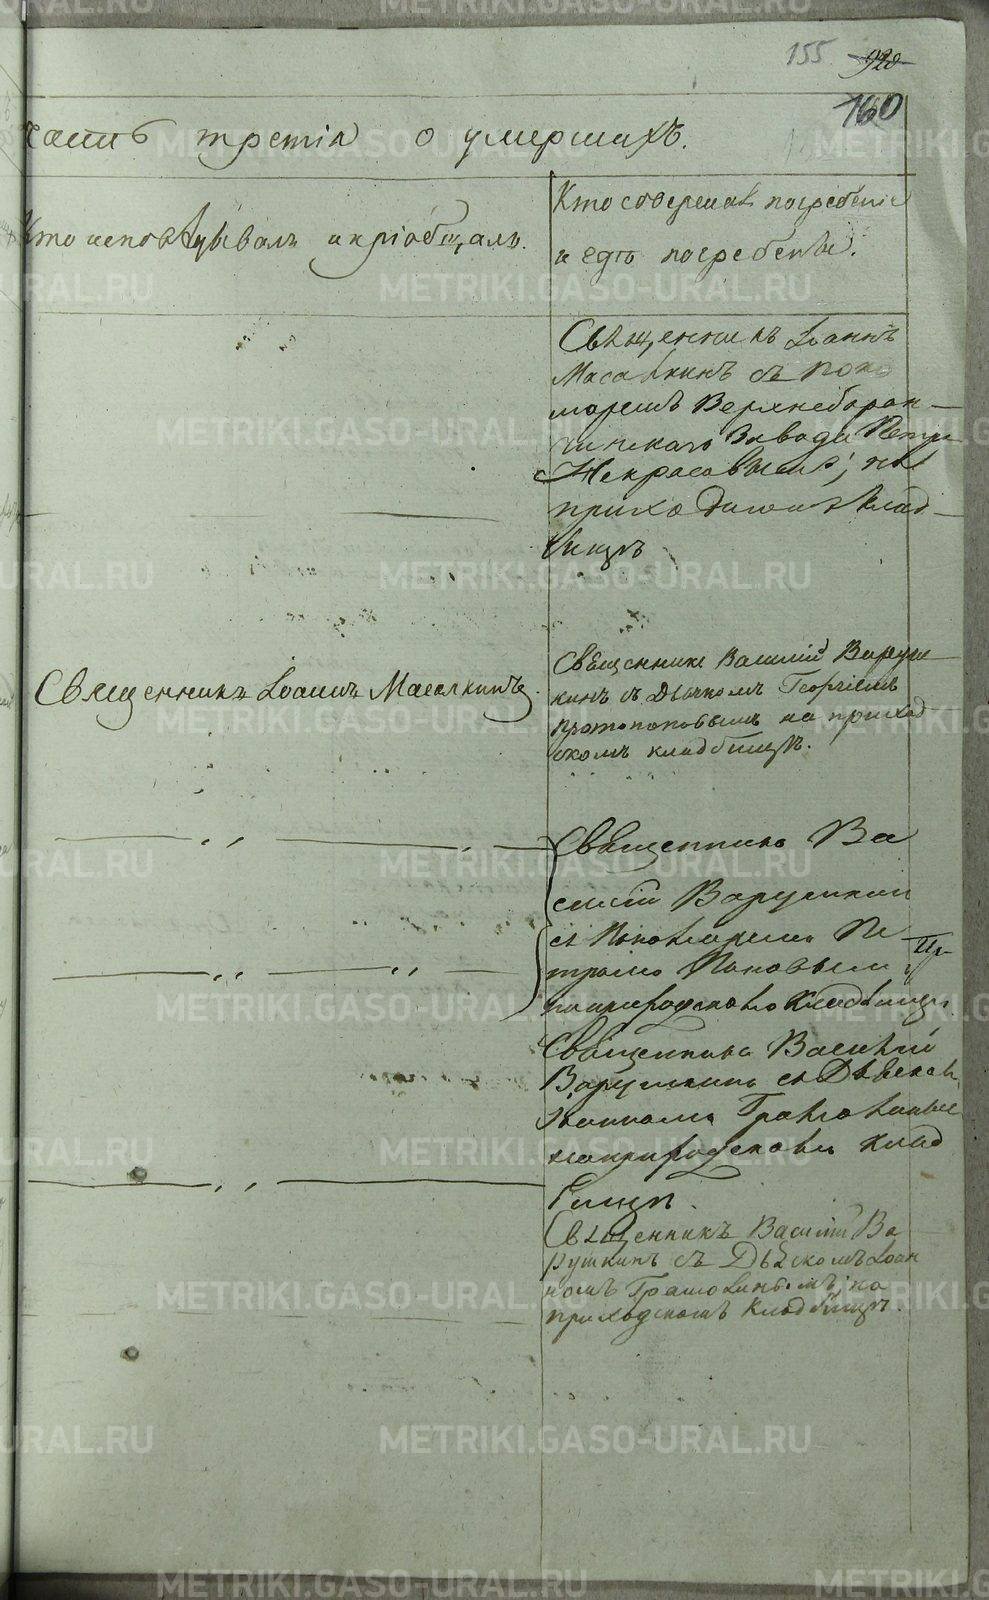 155 928
160
часть третія о умершихъ.
Кто исповѣдывалъ и пріобщалъ.
Кто совершалъ погребеніе
и гдѣ погребены.
Священникъ Іоаннъ
Масалкинъ съ поно
маремъ Верхнебаран
чинскаго Завода Петр
Некрасовымъ, на
приходскомъ Клад
бищѣ
Священникъ Іоаннъ Масалкинъ.
Священникъ Василій Варуш
кинъ съ Дьячкомъ Георгіемъ
Протопоповымъ на приход
скомъ кладбищѣ.
Священникъ Ва
силій Варушкинъ
съ Пономаремъ Пе
тромъ Поповымъ
на приходскомъ Кладбищѣ.
Священникъ Василій
Варушкинъ съ Дьячкомъ
Іоанномъ
на приходскомъ клад
бищѣ.
Священникъ Василій Ва
рушкинъ съ Дьячкомъ Іоан
номъ на
приходскомъ Кладбищѣ.
METRIKI.GASO-URAL.RU